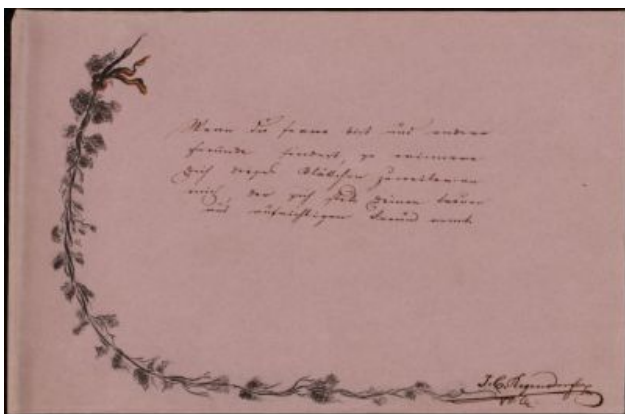 Wenn du ferne bist und andere
Freunde findest, so erinnere
Dich dieses Blättchen zuweilen an
mich, der sich stets Deinen
und aufrichtigen Freund nennt